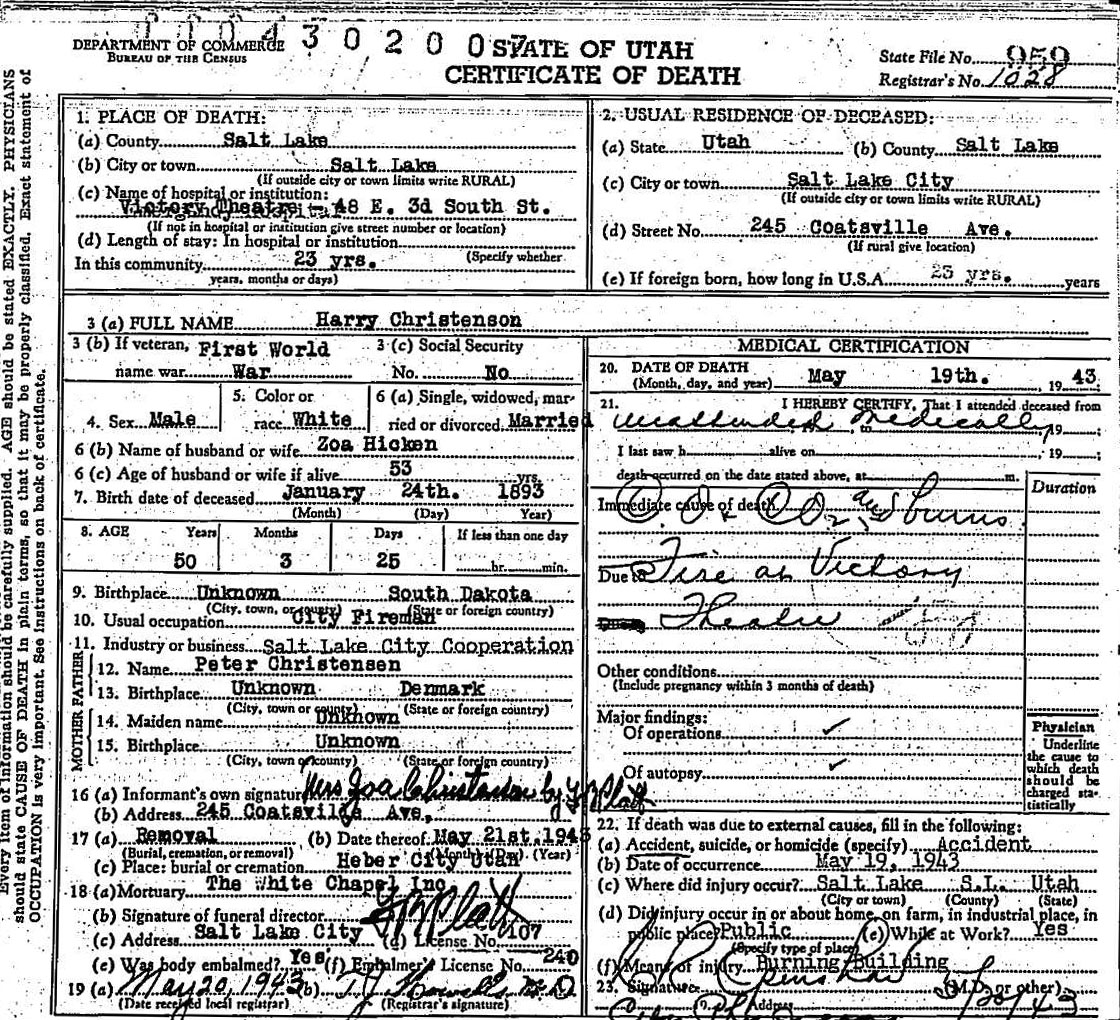 0 0 0 4 3 0 2 0 0 7
DEPARTMENT OF COMMERCE
BUREAU OF THE CENSUS
STATE OF UTAH
CERTIFICATE OF DEATH
State File No. 959
Registrar's No. 1028
Every item of information should be carefully supplied. AGE should be stated EXACTLY. PHYSICIANS
should state CAUSE OF DEATH in plain terms, so that it may be properly classified. Exact statement of
OCCUPATION is very important. See instructions on back of certificate.
1. PLACE OF DEATH:
(a) County Salt Lake
(b) City or town Salt Lake
(If outside city or town limits write RURAL)
(c) Name of hospital or institution:
Victory Theatre - 48 E. 3d South St.
(If not in hospital or institution give street number or location)
(d) Length of stay: In hospital or institution
In this community 23 yrs. (Specify whether
years, months or days)
2. USUAL RESIDENCE OF DECEASED:
(a) State Utah (b) County Salt Lake
(c) City or town Salt Lake City
(If outside city or town limits write RURAL)
(d) Street No. 245 Coatsville Ave.
(If rural give location)
(e) If foreign born, how long in U.S.A. 23 yrs. years
3 (a) FULL NAME Harry Christenson
3 (b) If veteran, First World 3 (c) Social Security
name war War No. No
4. Sex Male 5. Color or race White 6 (a) Single, widowed, married or divorced. Married
6 (b) Name of husband or wife Zoa Hicken
6 (c) Age of husband or wife if alive 53 yrs.
7. Birth date of deceased January 24th. 1893
(Month) (Day) Year)
8. AGE Years Months Days If less than one day
50 3 25 hr. min.
9. Birthplace Unknown South Dakota
(City, town, or county) (State or foreign country)
10. Usual occupation City Fireman
11. Industry or business Salt Lake City Cooperation
FATHER
12. Name Peter Christensen
13. Birthplace Unknown Denmark
(City, town or county) (State or foreign country)
MOTHER
14. Maiden name Unknown
15. Birthplace Unknown
(City, town or county) (State or foreign country)
16 (a) Informant's own signature Mrs Zoa Christenson by Platt
(b) Address 245 Coatsville Ave.
17 (a) Removal (b) Date thereof May 21st. 1943
(Burial, cremation, or removal) (Month) (Day) (Year)
(c) Place: burial or cremation Heber City Utah
18 (a) Mortuary The White Chapel Inc
(b) Signature of funeral director Platt
(c) Address Salt Lake City (d) License No. 107
(e) Was body embalmed? Yes (f) Embalmer's License No. 240
19 (a) May 20, 1943 (b) M D
(Date received local registrar) (Registrar's signature)
MEDICAL CERTIFICATION
20. DATE OF DEATH
(Month, day, and year) May 19th. 19 43
21. I HEREBY CERTIFY, That I attended deceased from
unattended medically to 19
I last saw h alive on 19
death occurred on the date stated above, at m.
Duration
Immediate cause of death C.O. & CO2, and burns
Due to Fire at Victory
Theatre
Other conditions
(Include pregnancy within 3 months of death)
Major findings:
Of operations ✓
Of autopsy ✓
Physician
Underline
the cause to
which death
should be
charged sta-
tistically
22. If death was due to external causes, fill in the following:
(a) Accident, suicide, or homicide (specify) Accident
(b) Date of occurrence May 19, 1943
(c) Where did injury occur? Salt Lake S.L. Utah
(City or town) (County) (State)
(d) Did injury occur in or about home, on farm, in industrial place, in
public place? Public (e) While at Work? Yes
(Specify type of place)
(f) Means of injury Burning Building
23. Signature (M.D. or other) 5/20/43
Address